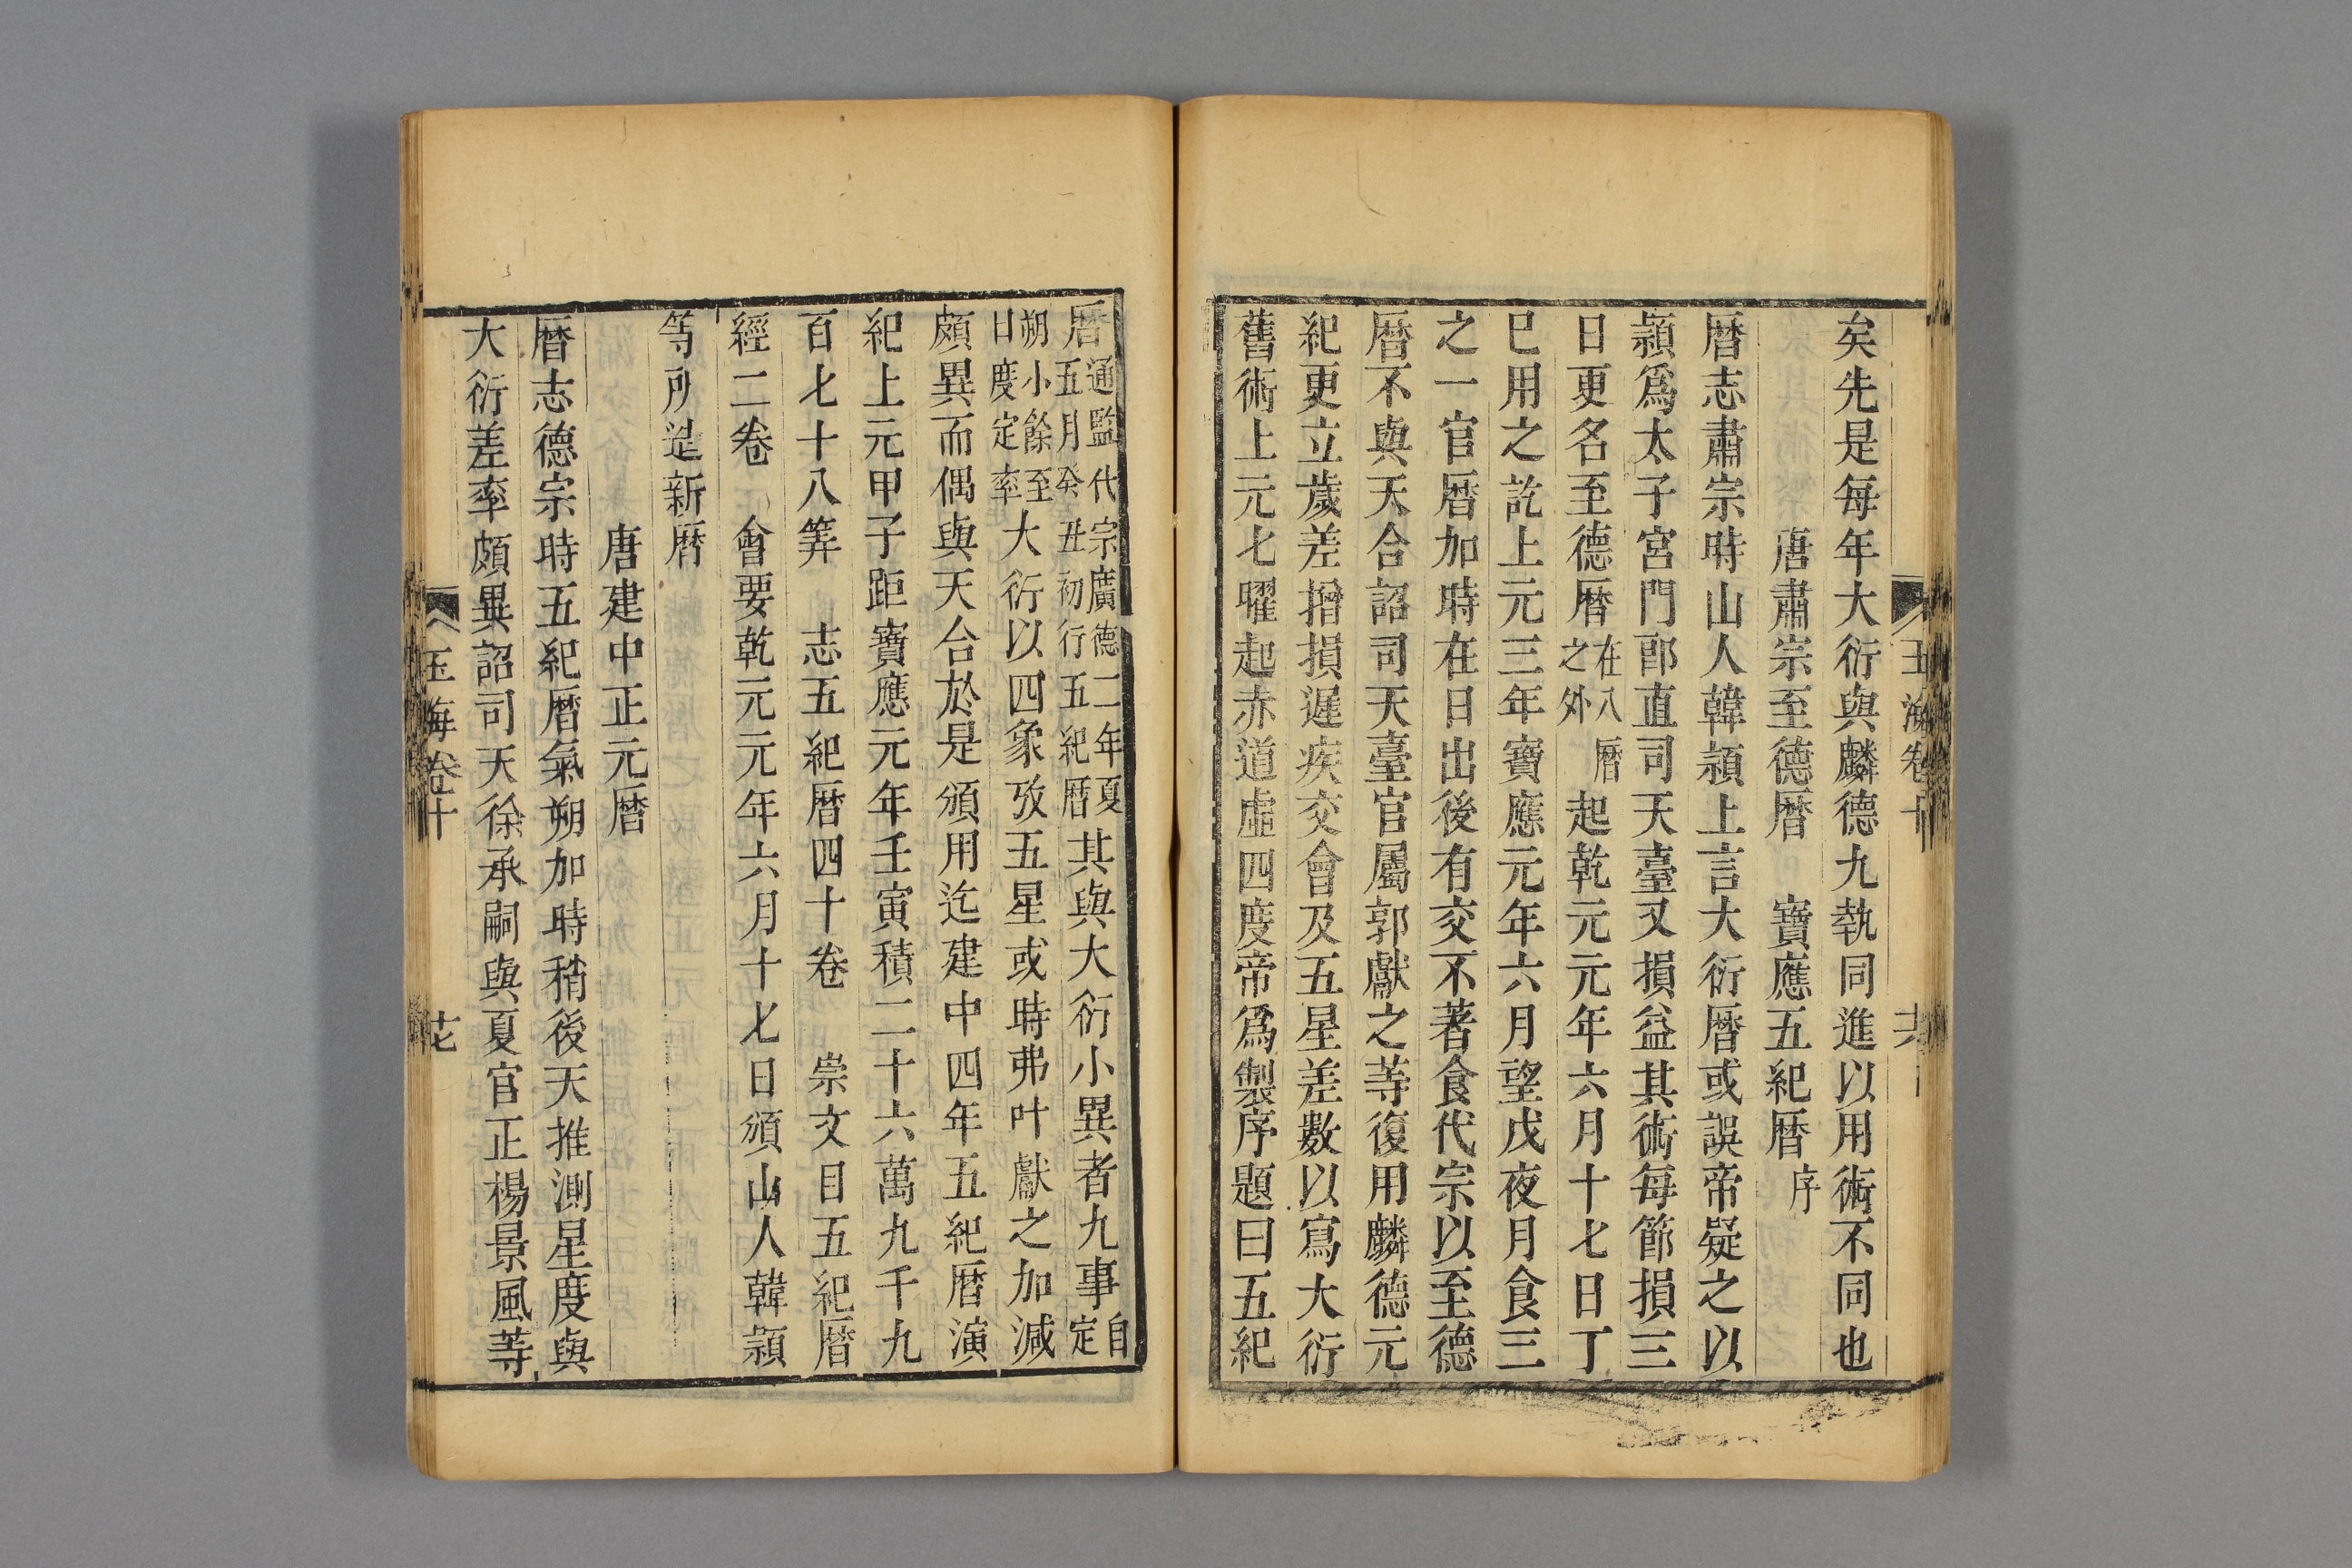 玉海卷十
十六
矣先是每年大衍與麟德九執同進以用術不同也
唐肅宗至德曆 寶應五紀曆 序
曆志肅宗時山人韓頴上言大衍曆或誤帝疑之以
頴爲太子宮門郎直司天臺又損益其術每節損三
日更名至德曆 在八曆之外 起乾元元年六月十七日丁
巳用之訖上元三年寶應元年六月望戊夜月食三
之一官曆加時在日出後有交不著食代宗以至德
曆不與天合詔司天臺官屬郭獻之等復用麟德元
紀更立歲差增損遲疾交會及五星差數以寫大衍
舊術上元七曜起赤道虛四度帝爲製序題曰五紀
曆 通監代宗廣德二年夏五月癸丑初行五紀曆 其與大衍小異者九事 自定
朔小餘至日度定率 大衍以四象攷五星或時弗叶獻之加減
頗異而偶與天合於是頒用迄建中四年五紀曆演
紀上元甲子距寶應元年壬寅積二十六萬九千九
百七十八筭 志五紀曆四十卷 崇文目五紀曆
經二卷 會要乾元元年六月十七日頒山人韓頴
等所造新曆
唐建中正元曆
曆志德宗時五紀曆氣朔加時稍後天推測星度與
大衍差率頗異詔司天徐承嗣與夏官正楊景風等
玉海卷十
十七